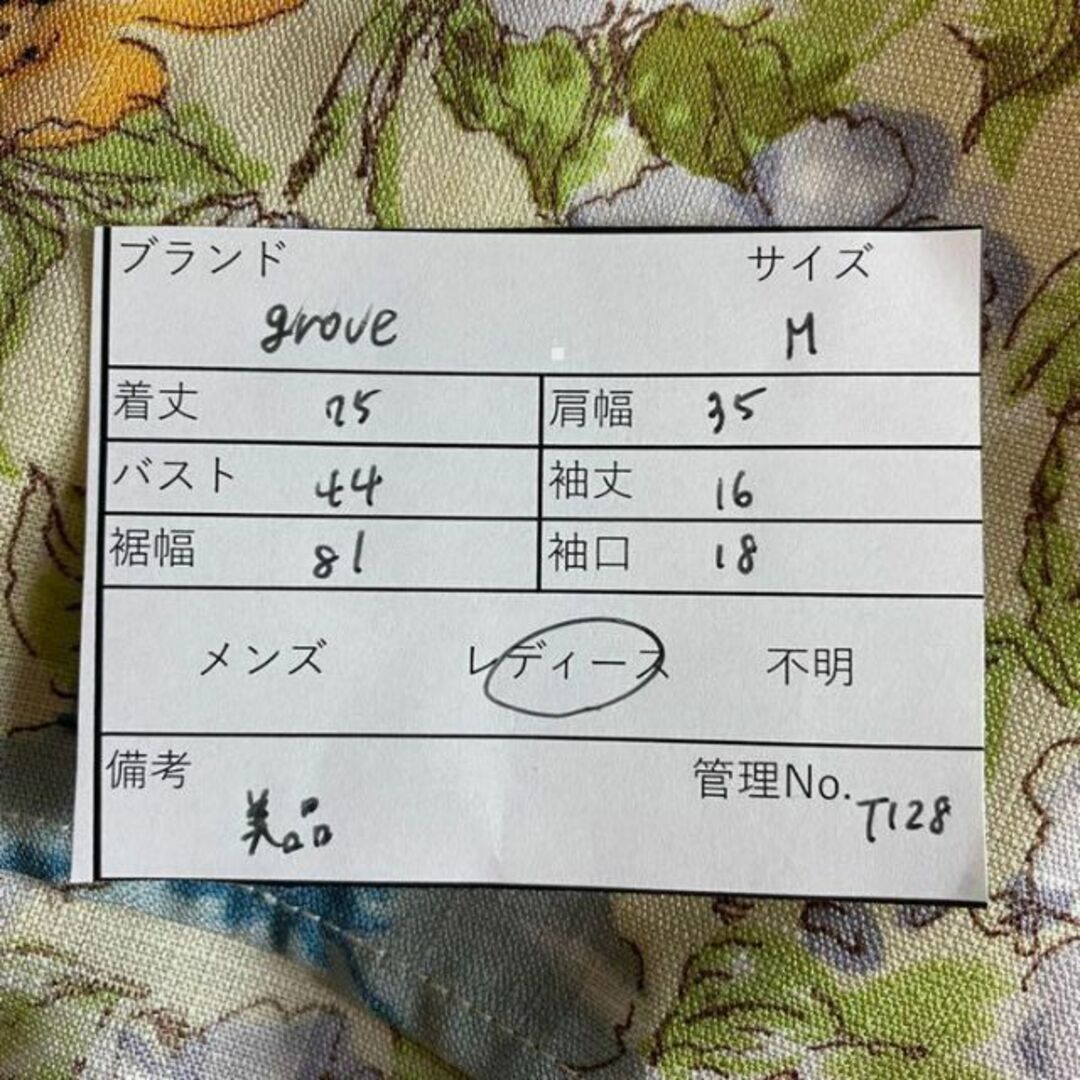 ブランド サイズ
grove M
着丈 75 肩幅 35
バスト 44 袖丈 16
裾幅 81 袖口 18
メンズ レディース 不明
備考 管理No.
美品 T128